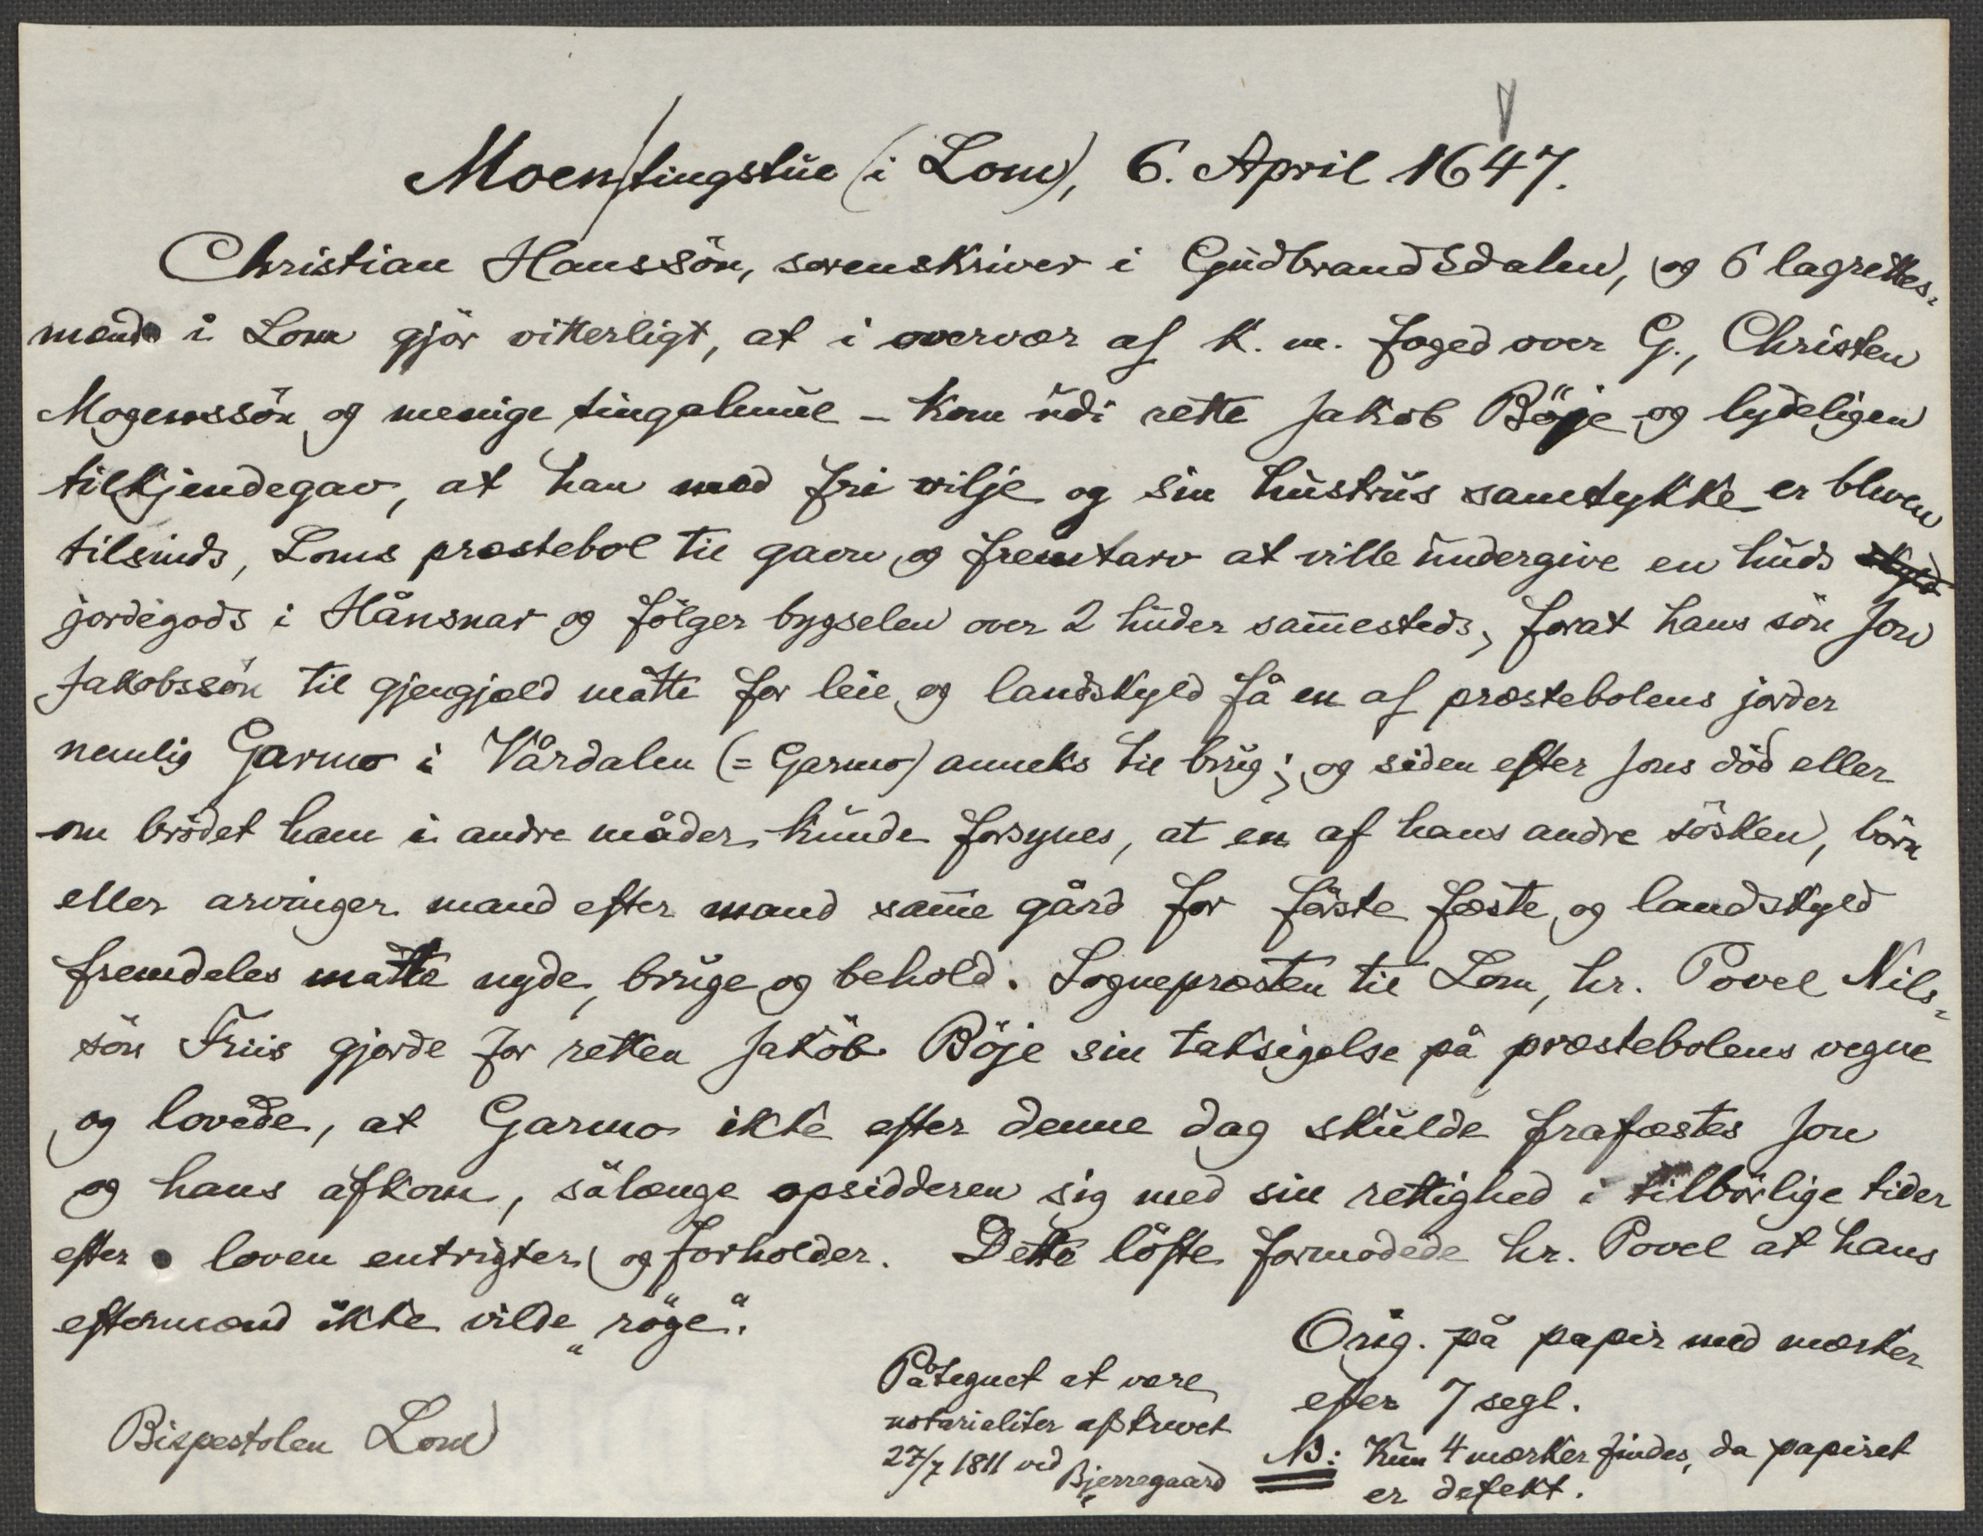 Moen/tingstue (i Lom), 6. April 1647.
Christian Hanssön, sorenskriver i Gudbrandsdalen, og 6 lagrettes-
mænd i Lom gjör vitterligt, at i overvær af k. m. foged over G., Christen
Mogenssön og menige tingalmue - kom udi rette Jakob Böje og lydeligen
tilkjendegav, at han med fri vilje og sin hustrus samtykke er bleven
tilsinds, Loms præstebol til gavn og fremtarv at ville undergive en huds skyld
jordegods i Hånsnar og fölger bygselen over 2 huder sam̄esteds, forat hans sön Jon
Jakobssön til gjengjæld måtte for leie og landskyld få en af præstebolens jorder
nemlig Garmo i Vårdalen (= Garmo) anneks til brug; og siden efter Jons död eller
om brödet ham i andre måder kunde forsynes, at en af hans andre sösken, börn
eller arvinger mand efter mand sam̄e gård for förste fæste og landskyld
fremdeles måtte nyde, bruge og behold. Sognepræsten til Lom, hr. Povel Nils-
sön Friis gjorde for retten Jakob Böje sin taksigelse på præstebolens vegne
og lovede, at Garmo ikke efter denne dag skulde frafæstes Jon
og hans afkom, sålænge opsidderen sig med sin rettighed i tilbörlige tider
efter loven entrigter og forholder. Dette löfte formodede hr. Povel at hans
eftermænd ikke vilde „röge“.
Orig. på papir med mærker
efter 7 segl.
NB: Kun 4 mærker findes, da papiret
er defekt.
Påtegnet at være
notarialiter afskrevet
27/7 1811 ved Bjerregaard
Bispestolen Lom